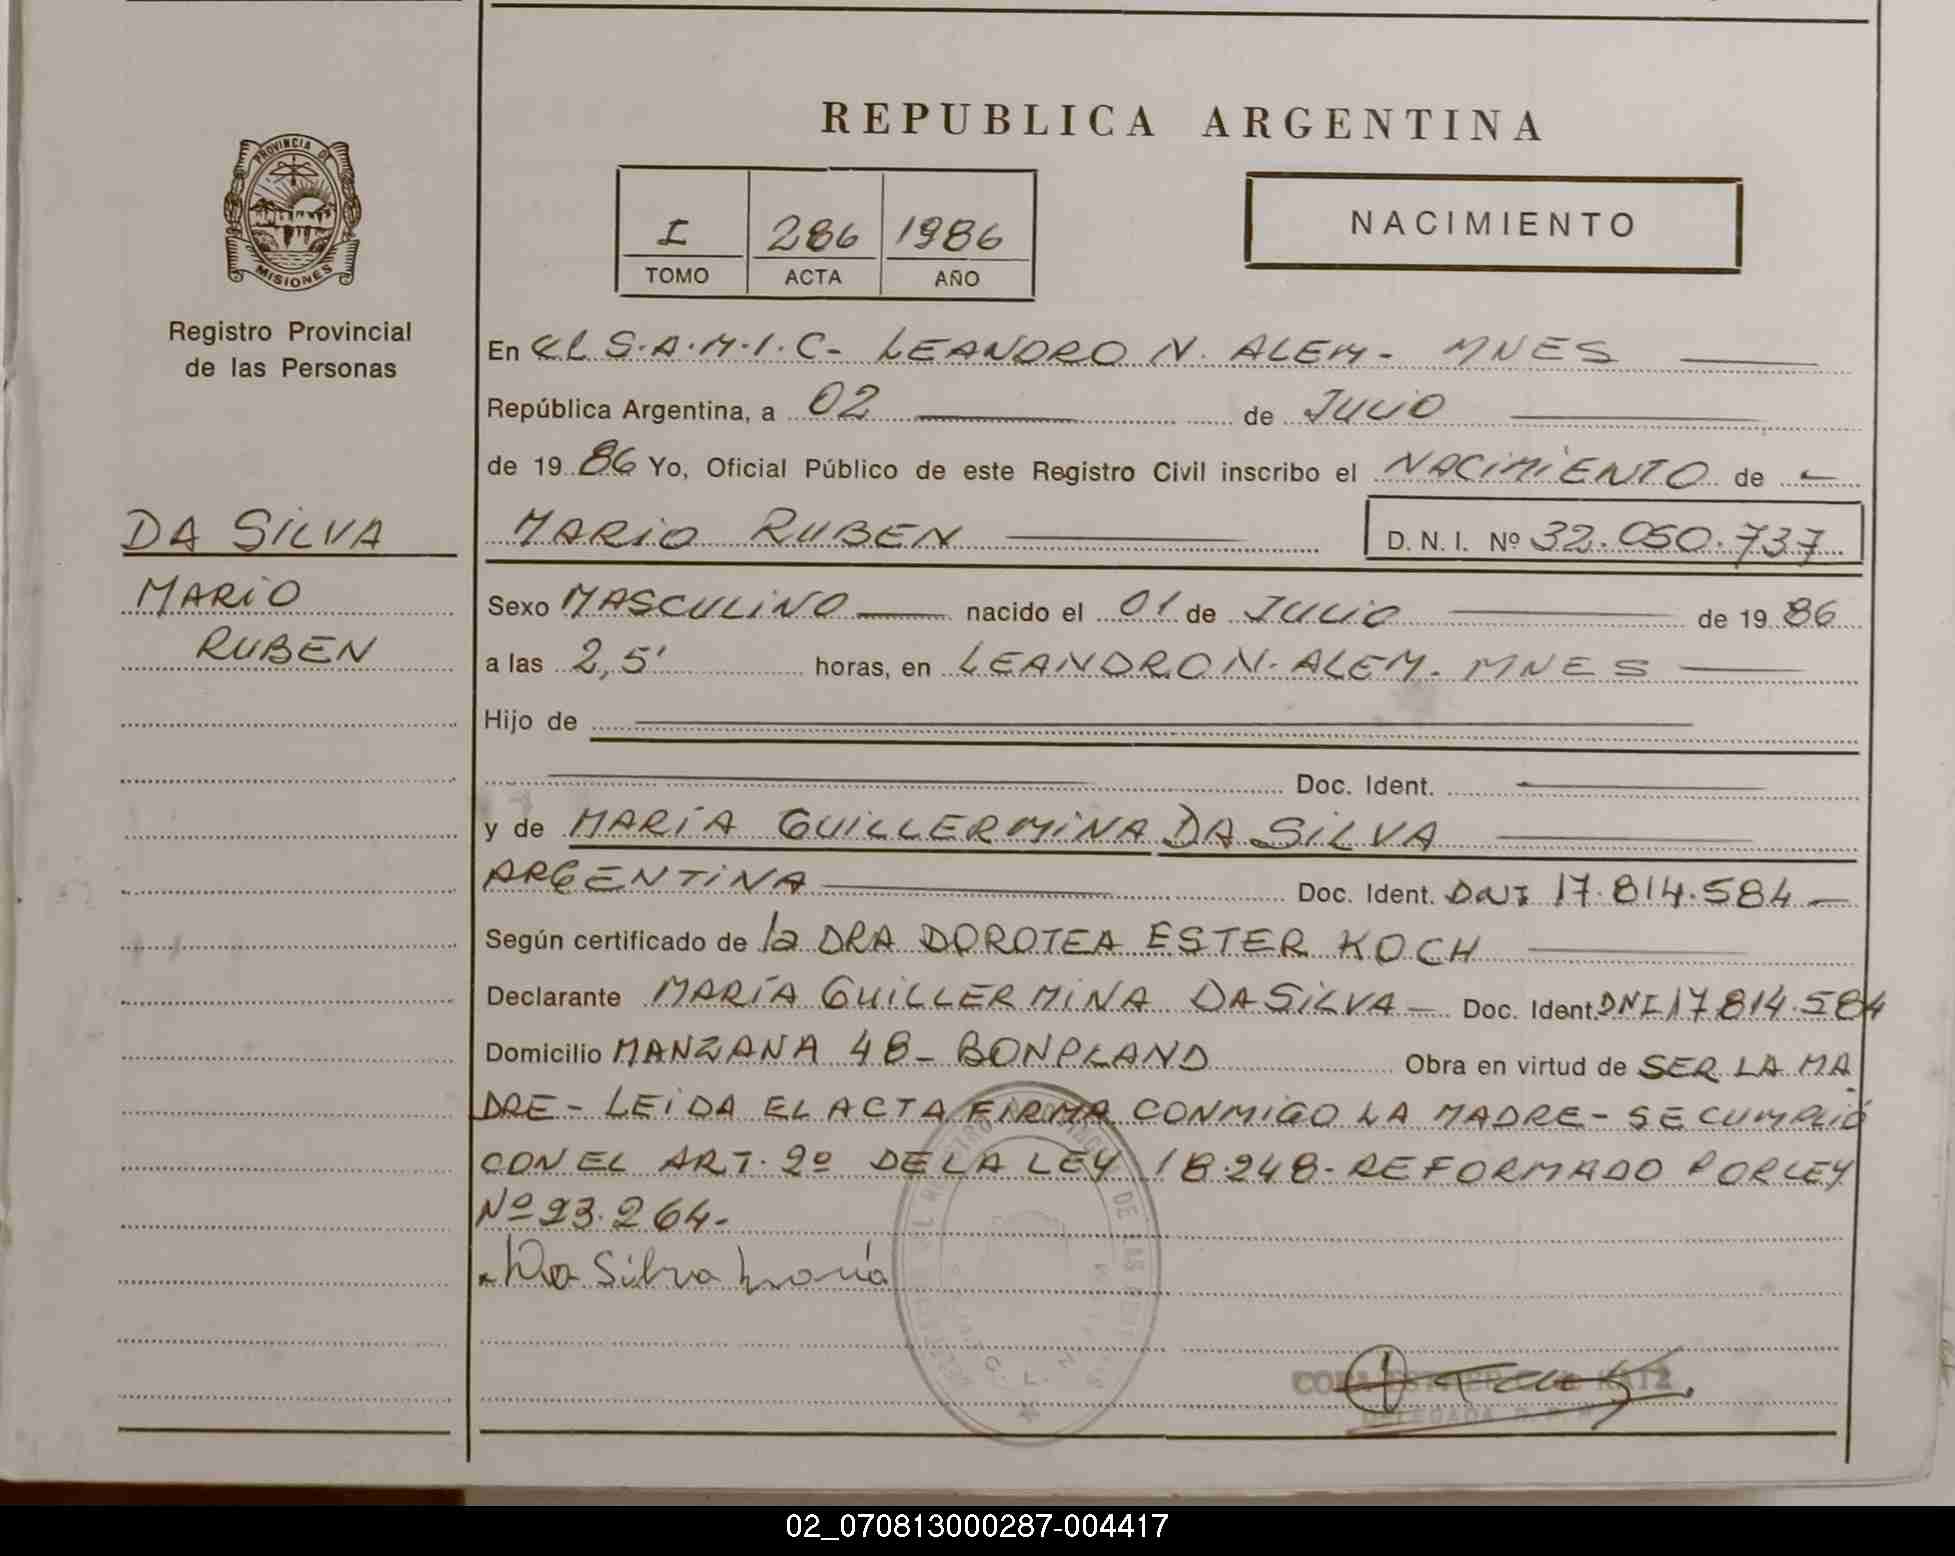 REPUBLICA ARGENTINA
PROVINCIA DE
MISIONES
I 286 1986
TOMO ACTA AÑO
NACIMIENTO
Registro Provincial
de las Personas
DA SILVA
MARIO
RUBEN
En el S.A.M.I.C- LEANDRO N. ALEM- MNES
República Argentina, a 02 de JULIO
de 1986 Yo, Oficial Público de este Registro Civil inscribo el NACIMIENTO de
MARIO RUBEN D. N. I. Nº 32.050.737
Sexo MASCULINO nacido el 01 de JULIO de 1986
a las 2,5' horas, en LEANDRO N. ALEM. MNES
Hijo de
Doc. Ident.
y de MARÍA GUILLERMINA DA SILVA
ARGENTINA Doc. Ident. DNI 17.814.584
Según certificado de la DRA DOROTEA ESTER KOCH
Declarante MARÍA GUILLERMINA DA SILVA Doc. Ident DNI 17 814.584
Domicilio MANZANA 48- BONPLAND Obra en virtud de SER LA MA
DRE- LEIDA EL ACTA FIRMA CONMIGO LA MADRE- SE CUMPLIÓ
CON EL ART. 2º DE LA LEY 18.248- REFORMADO POR LEY
Nº 23.264-
Da Silva María
DELEGADA
02_070813000287-004417